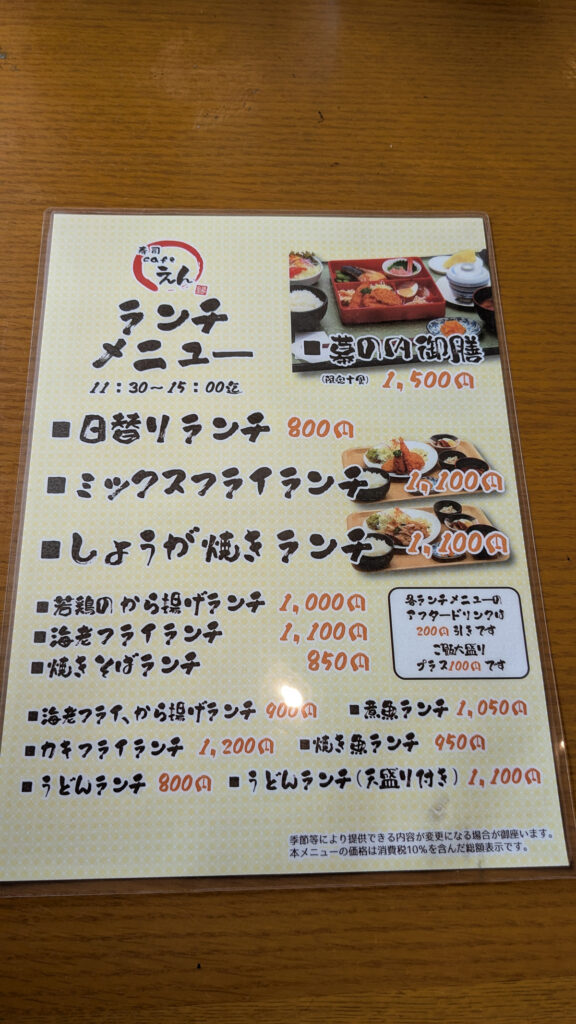 寿司
cafe
えん
ランチ
メニュー
11：30～15：00迄
■幕の内御膳
(限定十食) 1,500円
■日替りランチ 800円
■ミックスフライランチ 1,100円
■しょうが焼きランチ 1,100円
■若鶏のから揚げランチ 1,000円
■海老フライランチ 1,100円
■焼きそばランチ 850円
各ランチメニューの
アフタードリンクは
200円引きです
ご飯大盛り
プラス100円です
■海老フライ、から揚げランチ 900円 ■煮魚ランチ 1,050円
■カキフライランチ 1,200円 ■焼き魚ランチ 950円
■うどんランチ 800円 ■うどんランチ(天盛り付き) 1,100円
季節等により提供できる内容が変更になる場合が御座います。
本メニューの価格は消費税10％を含んだ総額表示です。